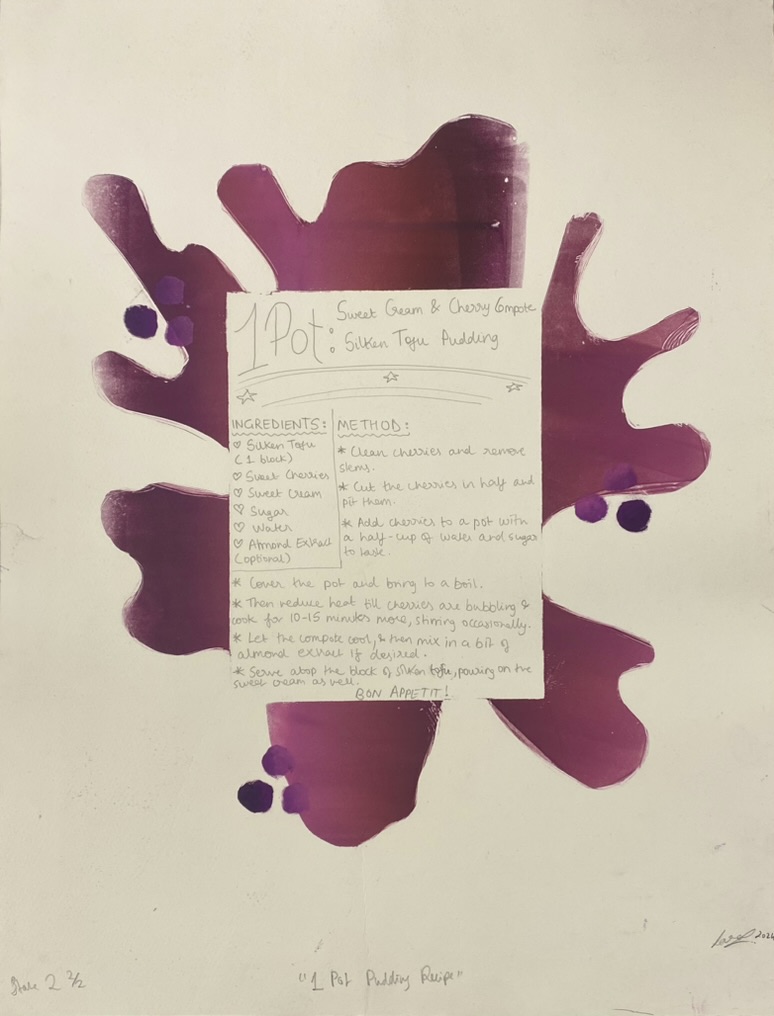 1 Pot:
Sweet Cream & Cherry Compote
Silken Tofu Pudding
INGREDIENTS:
♡ Silken Tofu
(1 block)
♡ Sweet Cherries
♡ Sweet Cream
♡ Sugar
♡ Water
♡ Almond Extract
(optional)
METHOD:
* Clean cherries and remove
stems.
* Cut the cherries in half and
pit them.
* Add cherries to a pot with
a half-cup of water and sugar
to taste.
* Cover the pot and bring to a boil.
* Then reduce heat till cherries are bubbling &
cook for 10-15 minutes more, stirring occasionally.
* Let the compote cool, & then mix in a bit of
almond extract if desired.
* Serve atop the block of silken tofu, pouring on the
sweet cream as well.
BON APPETIT!
2024
State 2 2/2
"1 Pot Pudding Recipe"